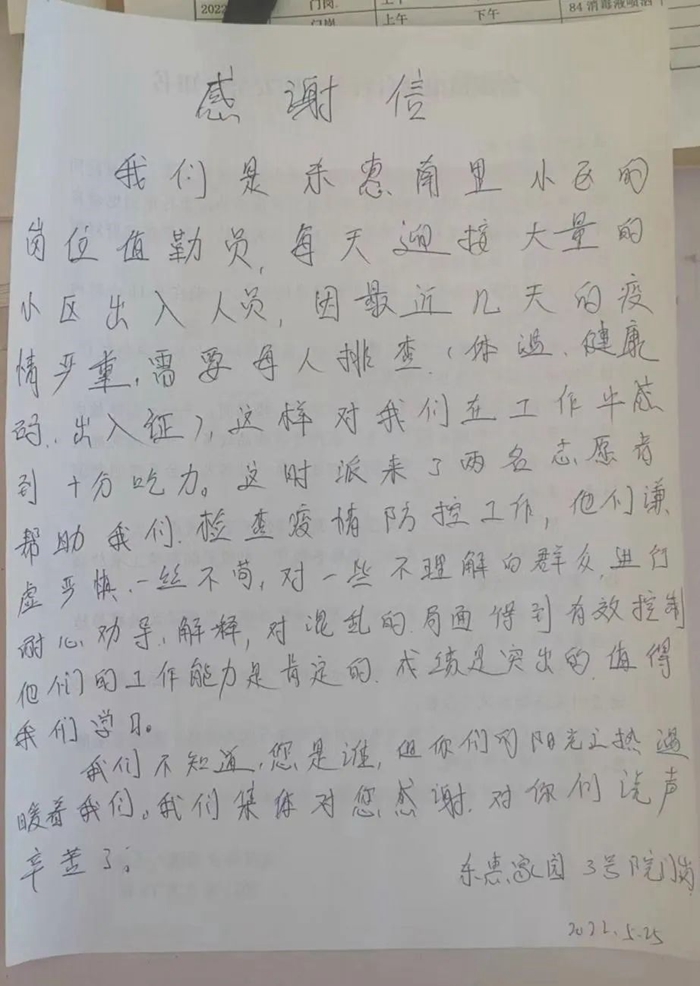 2022 门岗 上午
门岗 上午 下午 84消毒液喷洒
感谢信
我们是东惠南里小区的
岗位值勤员,每天迎接大量的
小区出入人员,因最近几天的疫
情严重,需要每人排查(体温、健康
码、出入证),这样对我们在工作中感
到十分吃力。这时派来了两名志愿者
帮助我们检查疫情防控工作,他们谦
虚严慎、一丝不苟,对一些不理解的群众,进行
耐心劝导、解释,对混乱的局面得到有效控制
他们的工作能力是肯定的、成绩是突出的、值得
我们学习。
我们不知道,您是谁,但你们阳光之热温
暖着我们。我们集体对您感谢、对你们说声
辛苦了;
东惠家园3号院门岗
2022.5.25